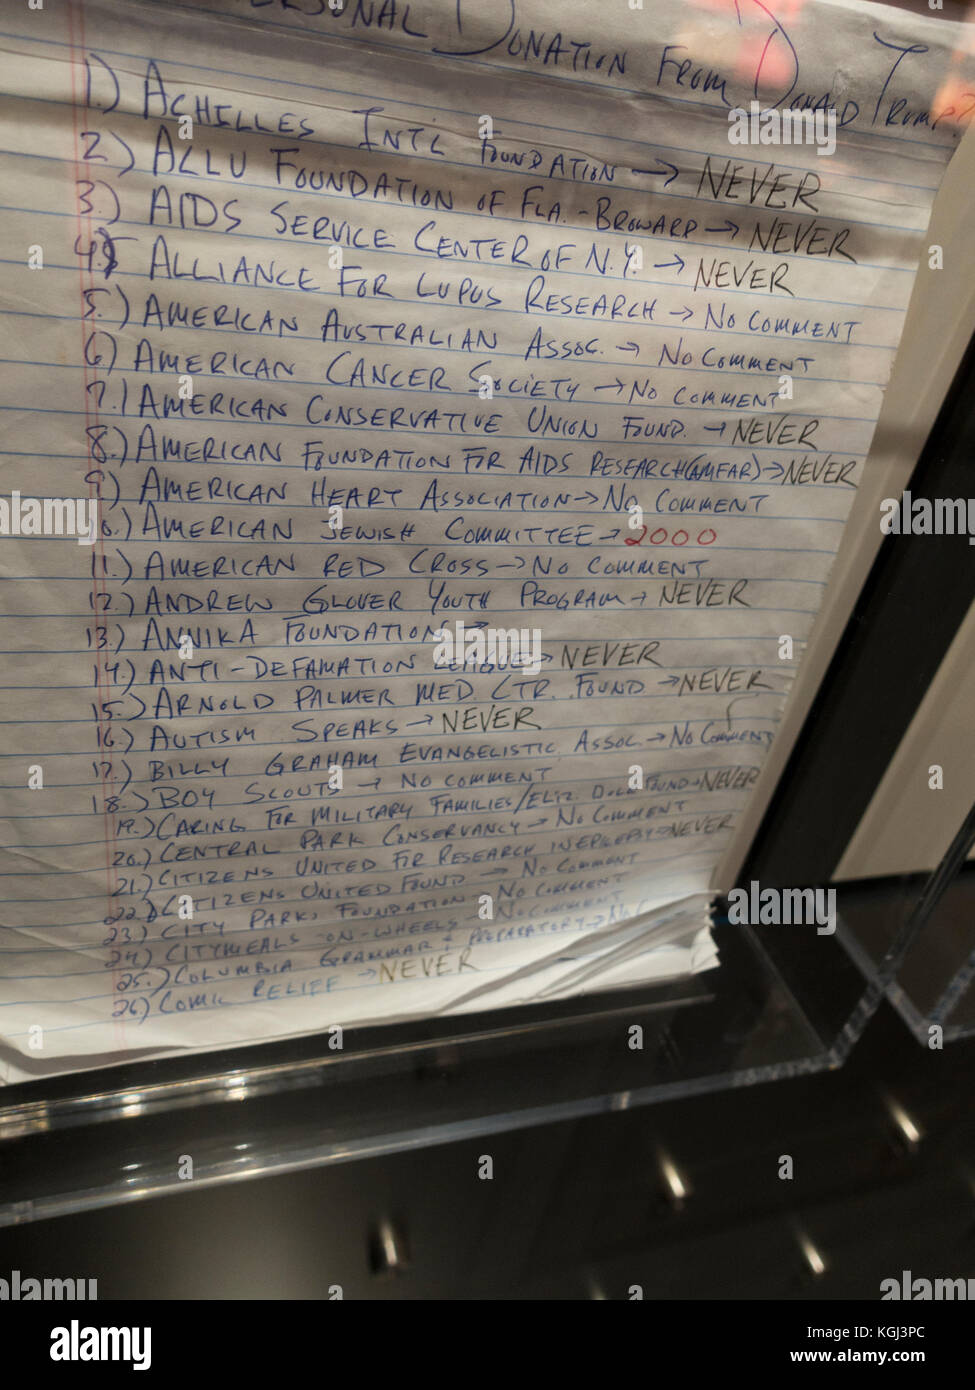 PERSONAL DONATION FROM DONALD TRUMP?
1.) ACHILLES INT'L FOUNDATION → NEVER
2.) ALLU FOUNDATION OF FLA.-BROWARD → NEVER
3.) AIDS SERVICE CENTER OF N.Y. → NEVER
4.) ALLIANCE FOR LUPUS RESEARCH → NO COMMENT
5.) AMERICAN AUSTRALIAN ASSOC. → NO COMMENT
6.) AMERICAN CANCER SOCIETY → NO COMMENT
7.) AMERICAN CONSERVATIVE UNION FOUND. → NEVER
8.) AMERICAN FOUNDATION FOR AIDS RESEARCH (AMFAR) → NEVER
9.) AMERICAN HEART ASSOCIATION → NO COMMENT
10.) AMERICAN JEWISH COMMITTEE → 2000
11.) AMERICAN RED CROSS → NO COMMENT
12.) ANDREW GLOVER YOUTH PROGRAM → NEVER
13.) ANNIKA FOUNDATION →
14.) ANTI-DEFAMATION LEAGUE → NEVER
15.) ARNOLD PALMER MED CTR. FOUND → NEVER
16.) AUTISM SPEAKS → NEVER
17.) BILLY GRAHAM EVANGELISTIC ASSOC. → NO COMMENT
18.) BOY SCOUTS → NO COMMENT
19.) CARING FOR MILITARY FAMILIES/ELIZ. DOLE FOUND → NEVER
20.) CENTRAL PARK CONSERVANCY → NO COMMENT
21.) CITIZENS UNITED FOR RESEARCH IN EPILEPSY → NEVER
22.) CITIZENS UNITED FOUND → NO COMMENT
23.) CITY PARKS FOUNDATION → NO COMMENT
24.) CITYMEALS-ON-WHEELS → NO COMMENT
25.) COLUMBIA GRAMMAR + PREPARATORY → NO C
26.) COMIC RELIEF → NEVER
alamy
Image ID: KGJ3PC
www.alamy.com